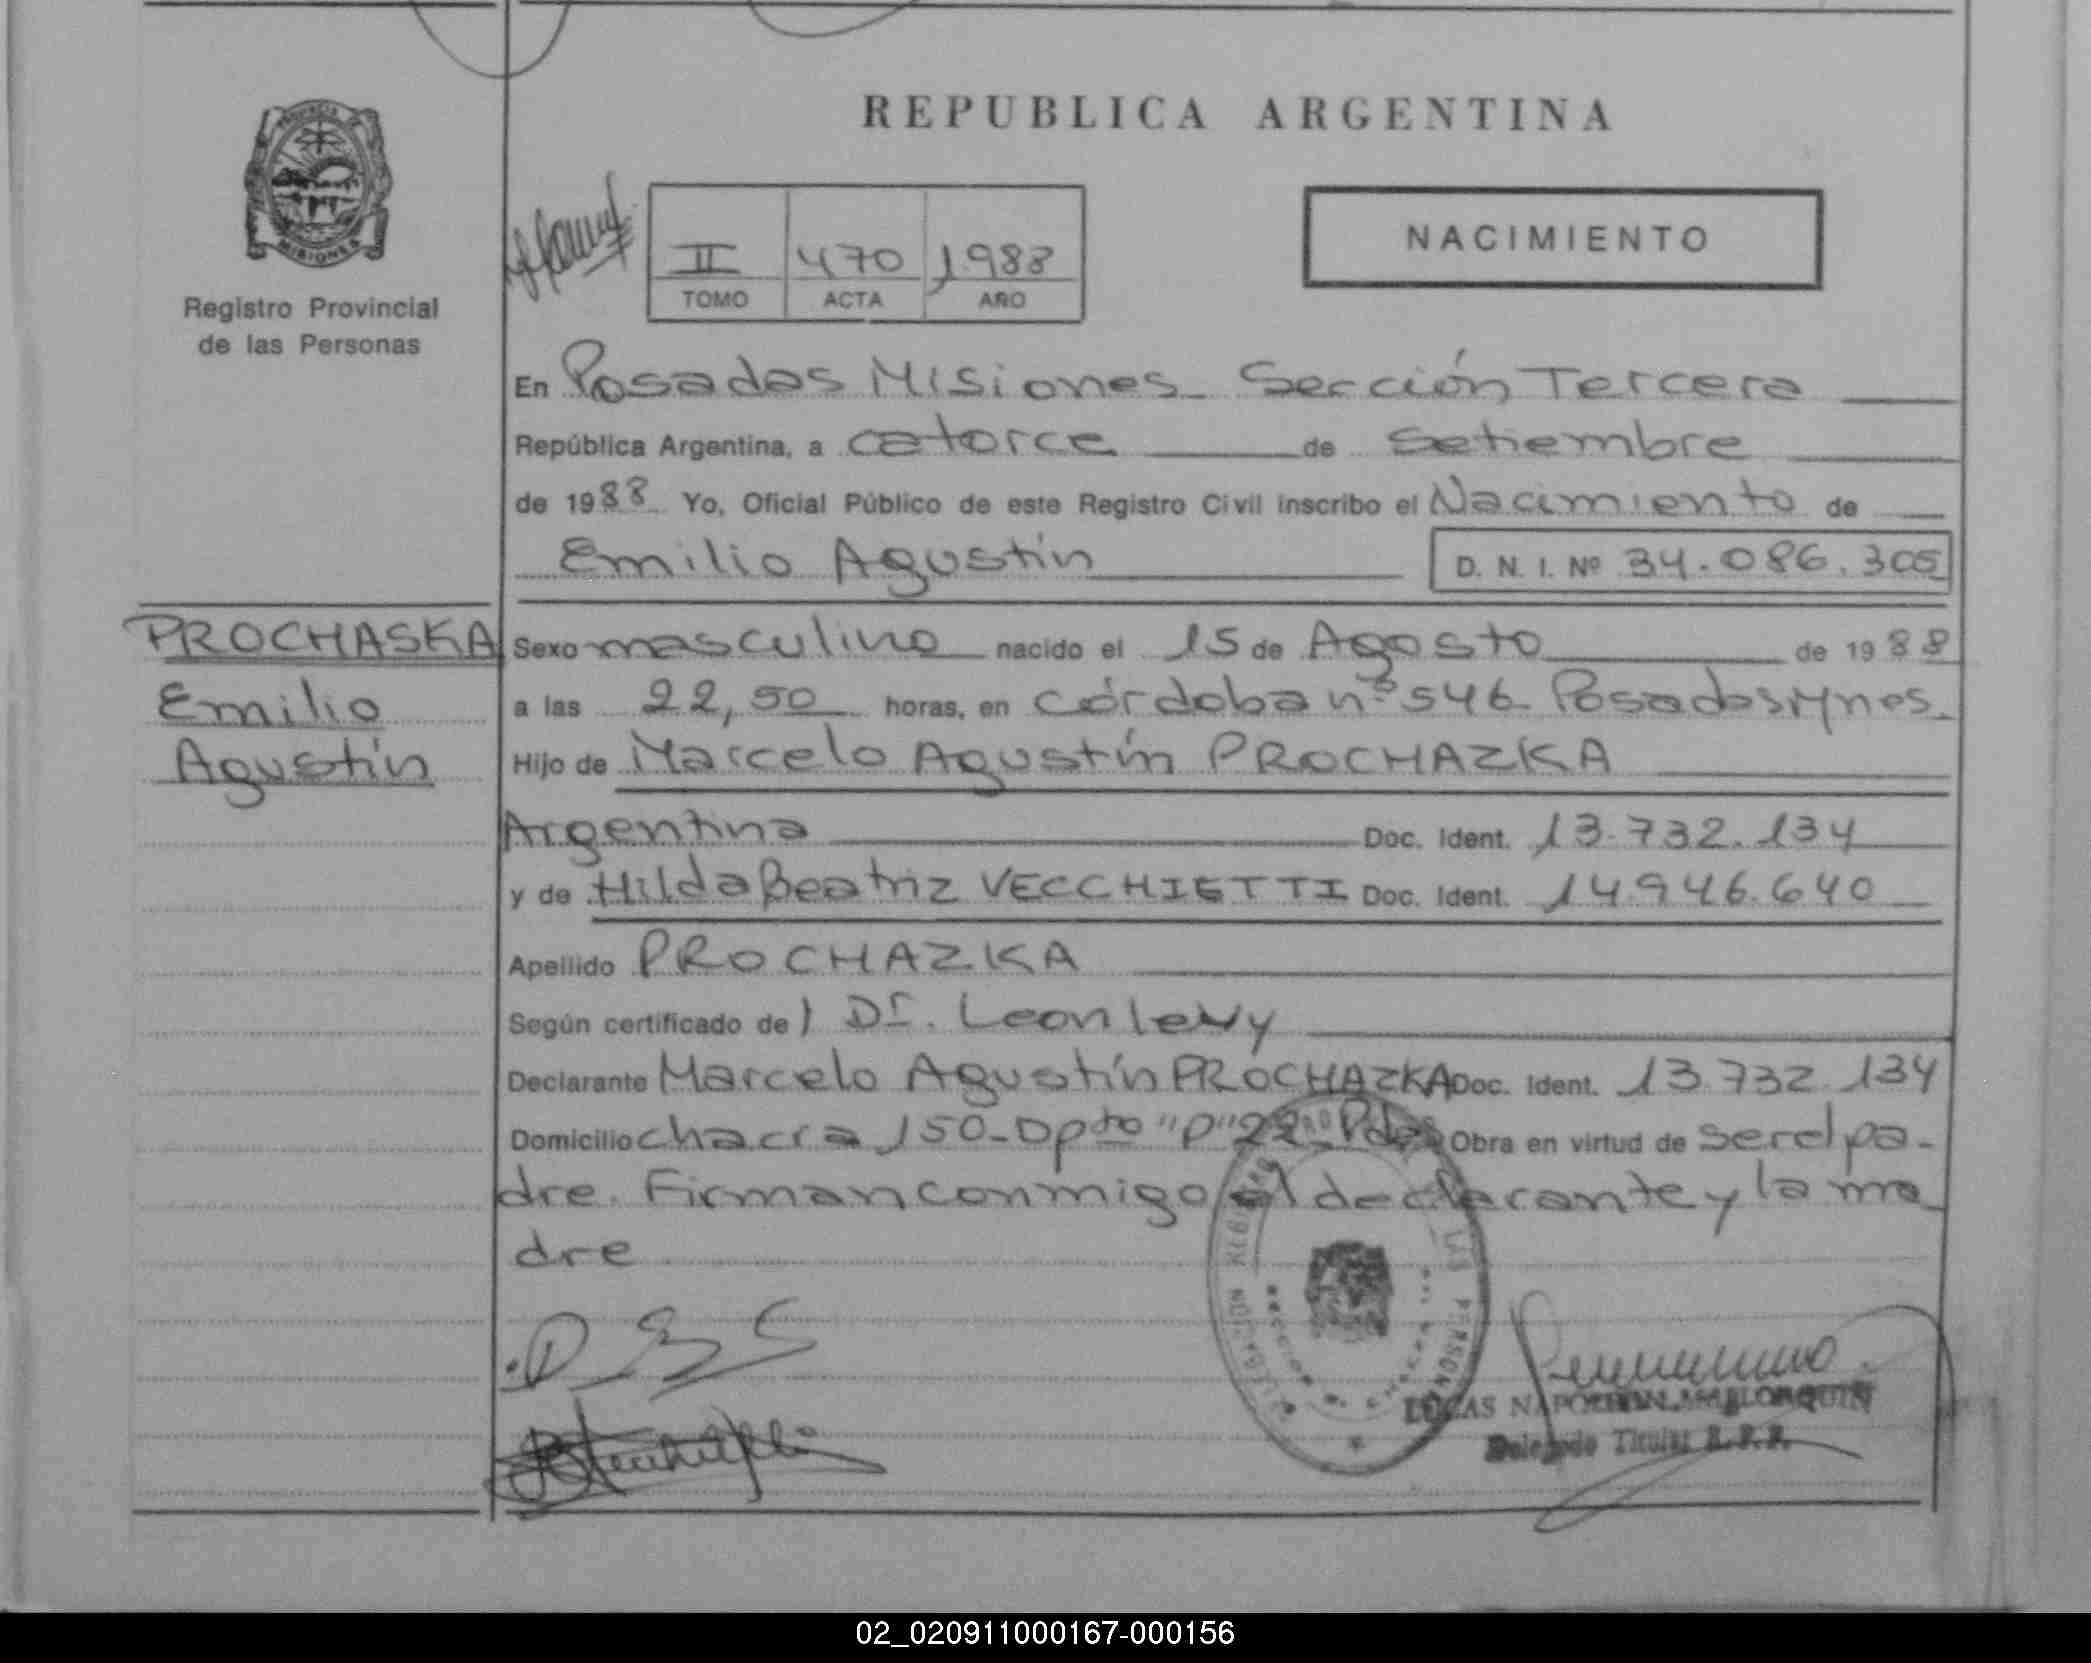 REPUBLICA ARGENTINA
PROVINCIA DE
MISIONES
Registro Provincial
de las Personas
II 470 1988
TOMO ACTA AÑO
NACIMIENTO
En Posadas Misiones - Sección Tercera
República Argentina, a catorce de Setiembre
de 1988 Yo, Oficial Público de este Registro Civil inscribo el Nacimiento de
Emilio Agustín D. N. I. Nº 34.086.305
PROCHASKA
Emilio
Agustín
Sexo masculino nacido el 15 de Agosto de 1988
a las 22,50 horas, en córdoba nº 546 - Posadas Mnes.
Hijo de Marcelo Agustín PROCHAZKA
Argentina Doc. Ident. 13.732.134
y de Hilda Beatriz VECCHIETTI Doc. Ident. 14.946.640
Apellido PROCHAZKA
Según certificado del Dr. Leon levy
Declarante Marcelo Agustín PROCHAZKA Doc. Ident. 13.732.134
Domicilio chacra 150 - Dpto "P" 22 - Pdas Obra en virtud de ser el pa-
dre. Firman conmigo el declarante y la ma
dre
LAS PERSONAS
LUCAS NAPOLEON MALLORQUIN
Delegado Titular R.P.P.
02_020911000167-000156